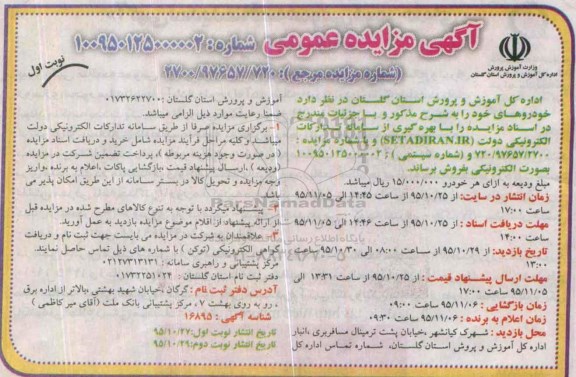 آگهی مزایده عمومی شماره : ۱۰۰۹۵۰۱۲۵۰۰۰۰۰۲
(شماره مزایده مرجع): ۷۲۰/۹۷۶۵۷/۲۷۰۰
نوبت اول
وزارت آموزش و پرورش
اداره کل آموزش و پرورش استان گلستان
اداره کل آموزش و پرورش استان گلستان در نظر دارد
خودروهای خود را به شرح مذکور و با جزئیات مندرج
در اسناد مزایـده را با بهره گیـری از سامانه تدارکات
الکترونیکی دولت (SETADIRAN.IR) و باشماره مزایده :
۷۲۰/۹۷۶۵۷/۲۷۰۰ و (شماره سیستمی) : ۱۰۰۹۵۰۱۲۵۰۰۰۰۰۲
بصورت الکترونیکی بفروش برساند.
مبلغ ودیعه به ازای هر خودرو ۱۵/۰۰۰/۰۰۰ ریال میباشد.
زمان انتشار در سایت: از ۹۵/۱۰/۲۵ از ساعت ۱۴:۴۵ الی ۹۵/۱۱/۰۵
ساعت ۱۷:۰۰
مهلت دریافت اسناد : از ۹۵/۱۰/۲۵ از ساعت ۱۴:۴۶ الی ۹۵/۱۱/۰۵
ساعت ۱۴:۰۰
تاریخ بازدید: از ۹۵/۱۰/۲۹ از ساعت ۰۸:۰۰ الی ۹۵/۱۰/۳۰ ساعت
۱۳:۰۰
مهلت ارسال پیشنهاد قیمت : از ۹۵/۱۰/۲۵ از ساعت ۱۳:۳۱ الی
۹۵/۱۱/۰۵ ساعت ۱۷:۰۰
زمان بازگشایی : ۹۵/۱۱/۰۶ ساعت ۰۹:۰۰
زمان اعلام به برنده : ۹۵/۱۱/۰۶ ساعت ۰۹:۳۰
محل بازدید : شهرک کیانشهر ،خیابان پشت ترمینال مسافربری ،انبار
اداره کل آموزش و پرورش استان گلستان، شماره تماس اداره کل
آموزش و پرورش استان گلستان : ۰۱۷۳۲۶۲۲۷۰۰
ضمنا رعایت موارد ذیل الزامی میباشد.
۱- برگزاری مزایده صرفا از طریق سامانه تدارکات الکترونیکی دولت
میباشد و کلیه مراحل فرآیند مزایده شامل خرید و دریافت اسناد مزایده
(در صورت وجود هزینه مربوطه)، پرداخت تضمین شرکت در مزایده
(ودیعه) ،ارسال پیشنهاد قیمت ،بازگشایی پاکات ،اعلام به برنده ،واریز
وجه مزایده و تحویل کالا در بستر سامانه از این طریق امکان پذیر می
باشد.
پیشنهاد میگردد با توجه به تنوع کالاهای مطرح شده در مزایده قبل
از ارائه پیشنهاد، از اقلام موضوع مزایده بازدید به عمل آورید.
۳- علاقمندان به شرکت در مزایده می بایست جهت ثبت نام و دریافت
گواهی الکترونیکی (توکن ) با شماره های ذیل تماس حاصل نمایند.
مرکز پشتیبانی و راهبری سامانه : ۰۲۱۲۷۳۱۳۱۳۱
دفتر ثبت نام استان گلستان : ۰۱۷۳۲۲۵۱۰۲۴
آدرس دفتر ثبت نام : گرگان ،خیابان شهید بهشتی ،بالاتر از اداره برق
، رو به روی بهشت ۷ ، مرکز پشتیبانی بانک ملت (آقای میر کاظمی )
شناسه آگهی : ۱۶۸۹۵
تاریخ انتشار نوبت اول:۹۵/۱۰/۲۷
تاریخ انتشار نوبت دوم:۹۵/۱۰/۲۹
ParsNamadData
پایگاه اطلاع رسانی